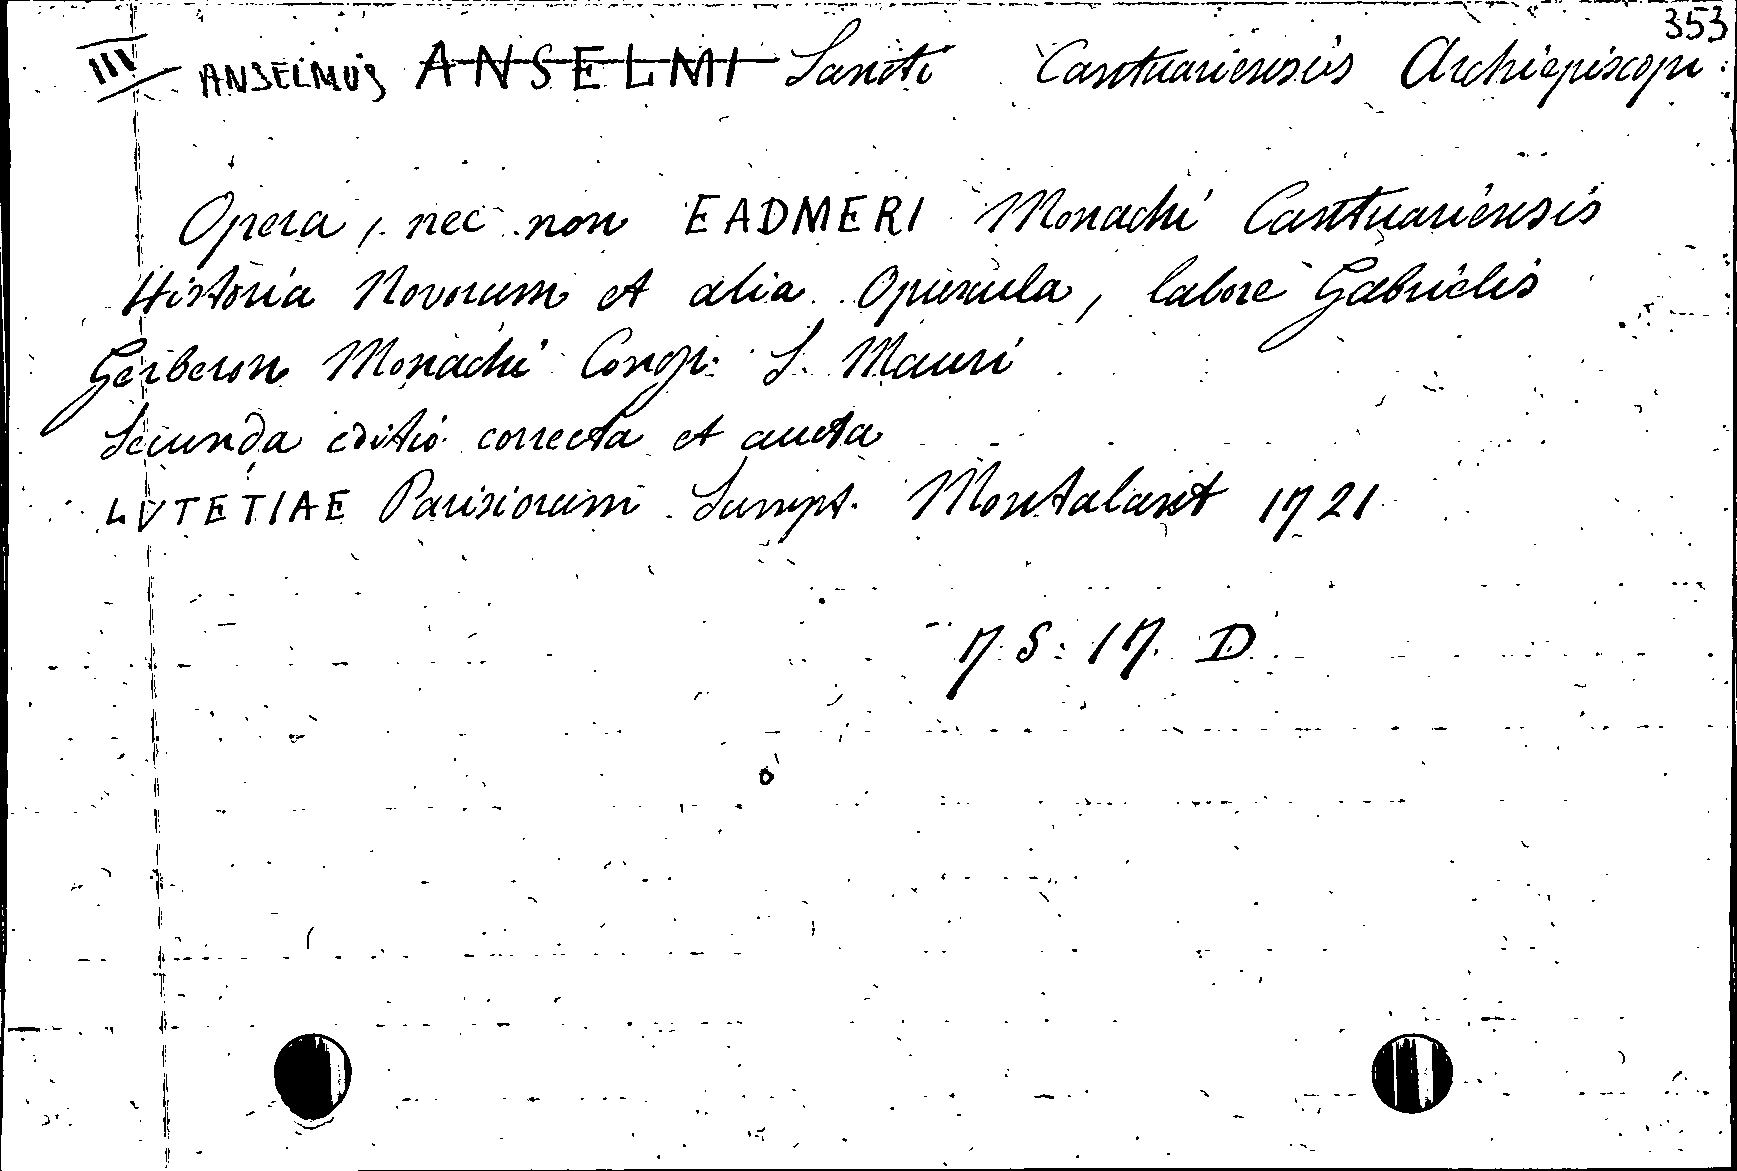 353
III ANSELMUS ANSELMI Sancti Cantuariensis Archiepiscopi
Opera, nec non EADMERI Monachi Cantuariensis
Historia Novorum et alia Opuscula, labore Gabrielis
Gerberon Monachi Congr. S. Mauri
Secunda editio correcta et aucta
LVTETIAE Parisiorum Sumpt. Montalant 1721
7. S. 17. D